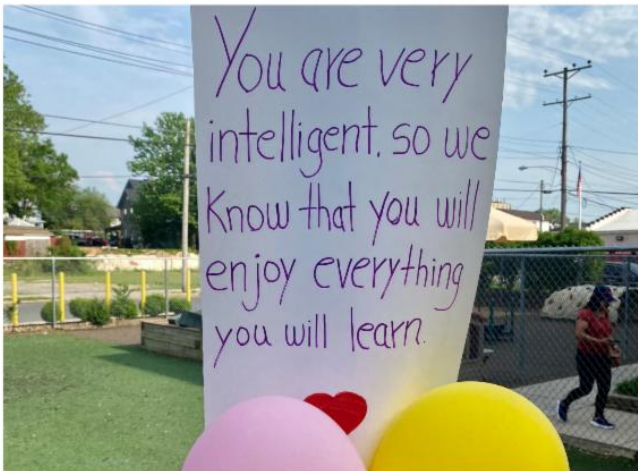 You are very
intelligent. so we
know that you will
enjoy everything
you will learn.